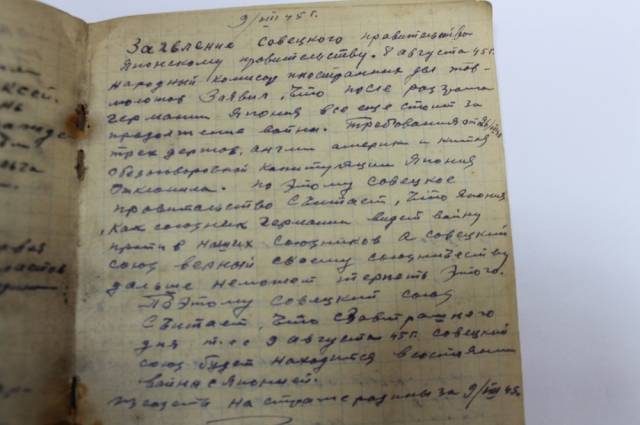 9/VIII 45 г.
Заявление Совецкого правительства
Японскому правительству. 8 августа 45 г.
народный комисар иностранных дел тов-
молотов Заявил, Что после разгрома
Германии Япония все еще стоит за
продолжение войны. Требования от 26/VII
трех держав, англии америки и китая
О безговорочной капитуляции Япония
Отклонила. По этому Совецкое
правительство Считает, Что Япония
как союзник Германии ведет войну
против наших Союзников а Совецкий
союз верный своему союзничеству
дальше неможот терпеть Этого.
ПоЭтому Совецкий союз
Считает, Что Сзавтрашнего
дня т.е. с 9 августа 45 г. Совецкий
союз будет находится в состоянии
войны с Японией.
Из газеты На страже родины за 9/VIII 45 г.
ксей.
нь
ожде
льга